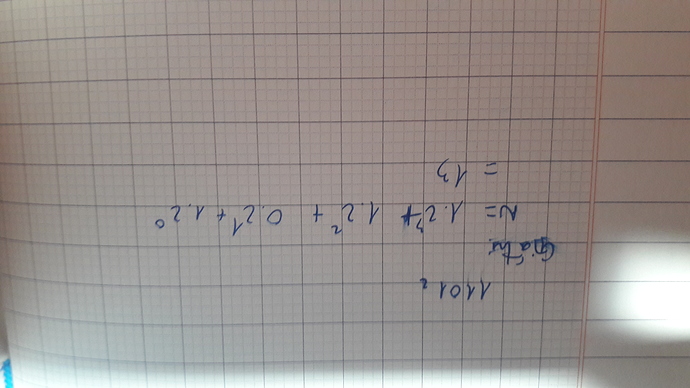 1101₂
Giá trị
N = 1.2³ + 1.2² + 0.2¹ + 1.2⁰
= 13